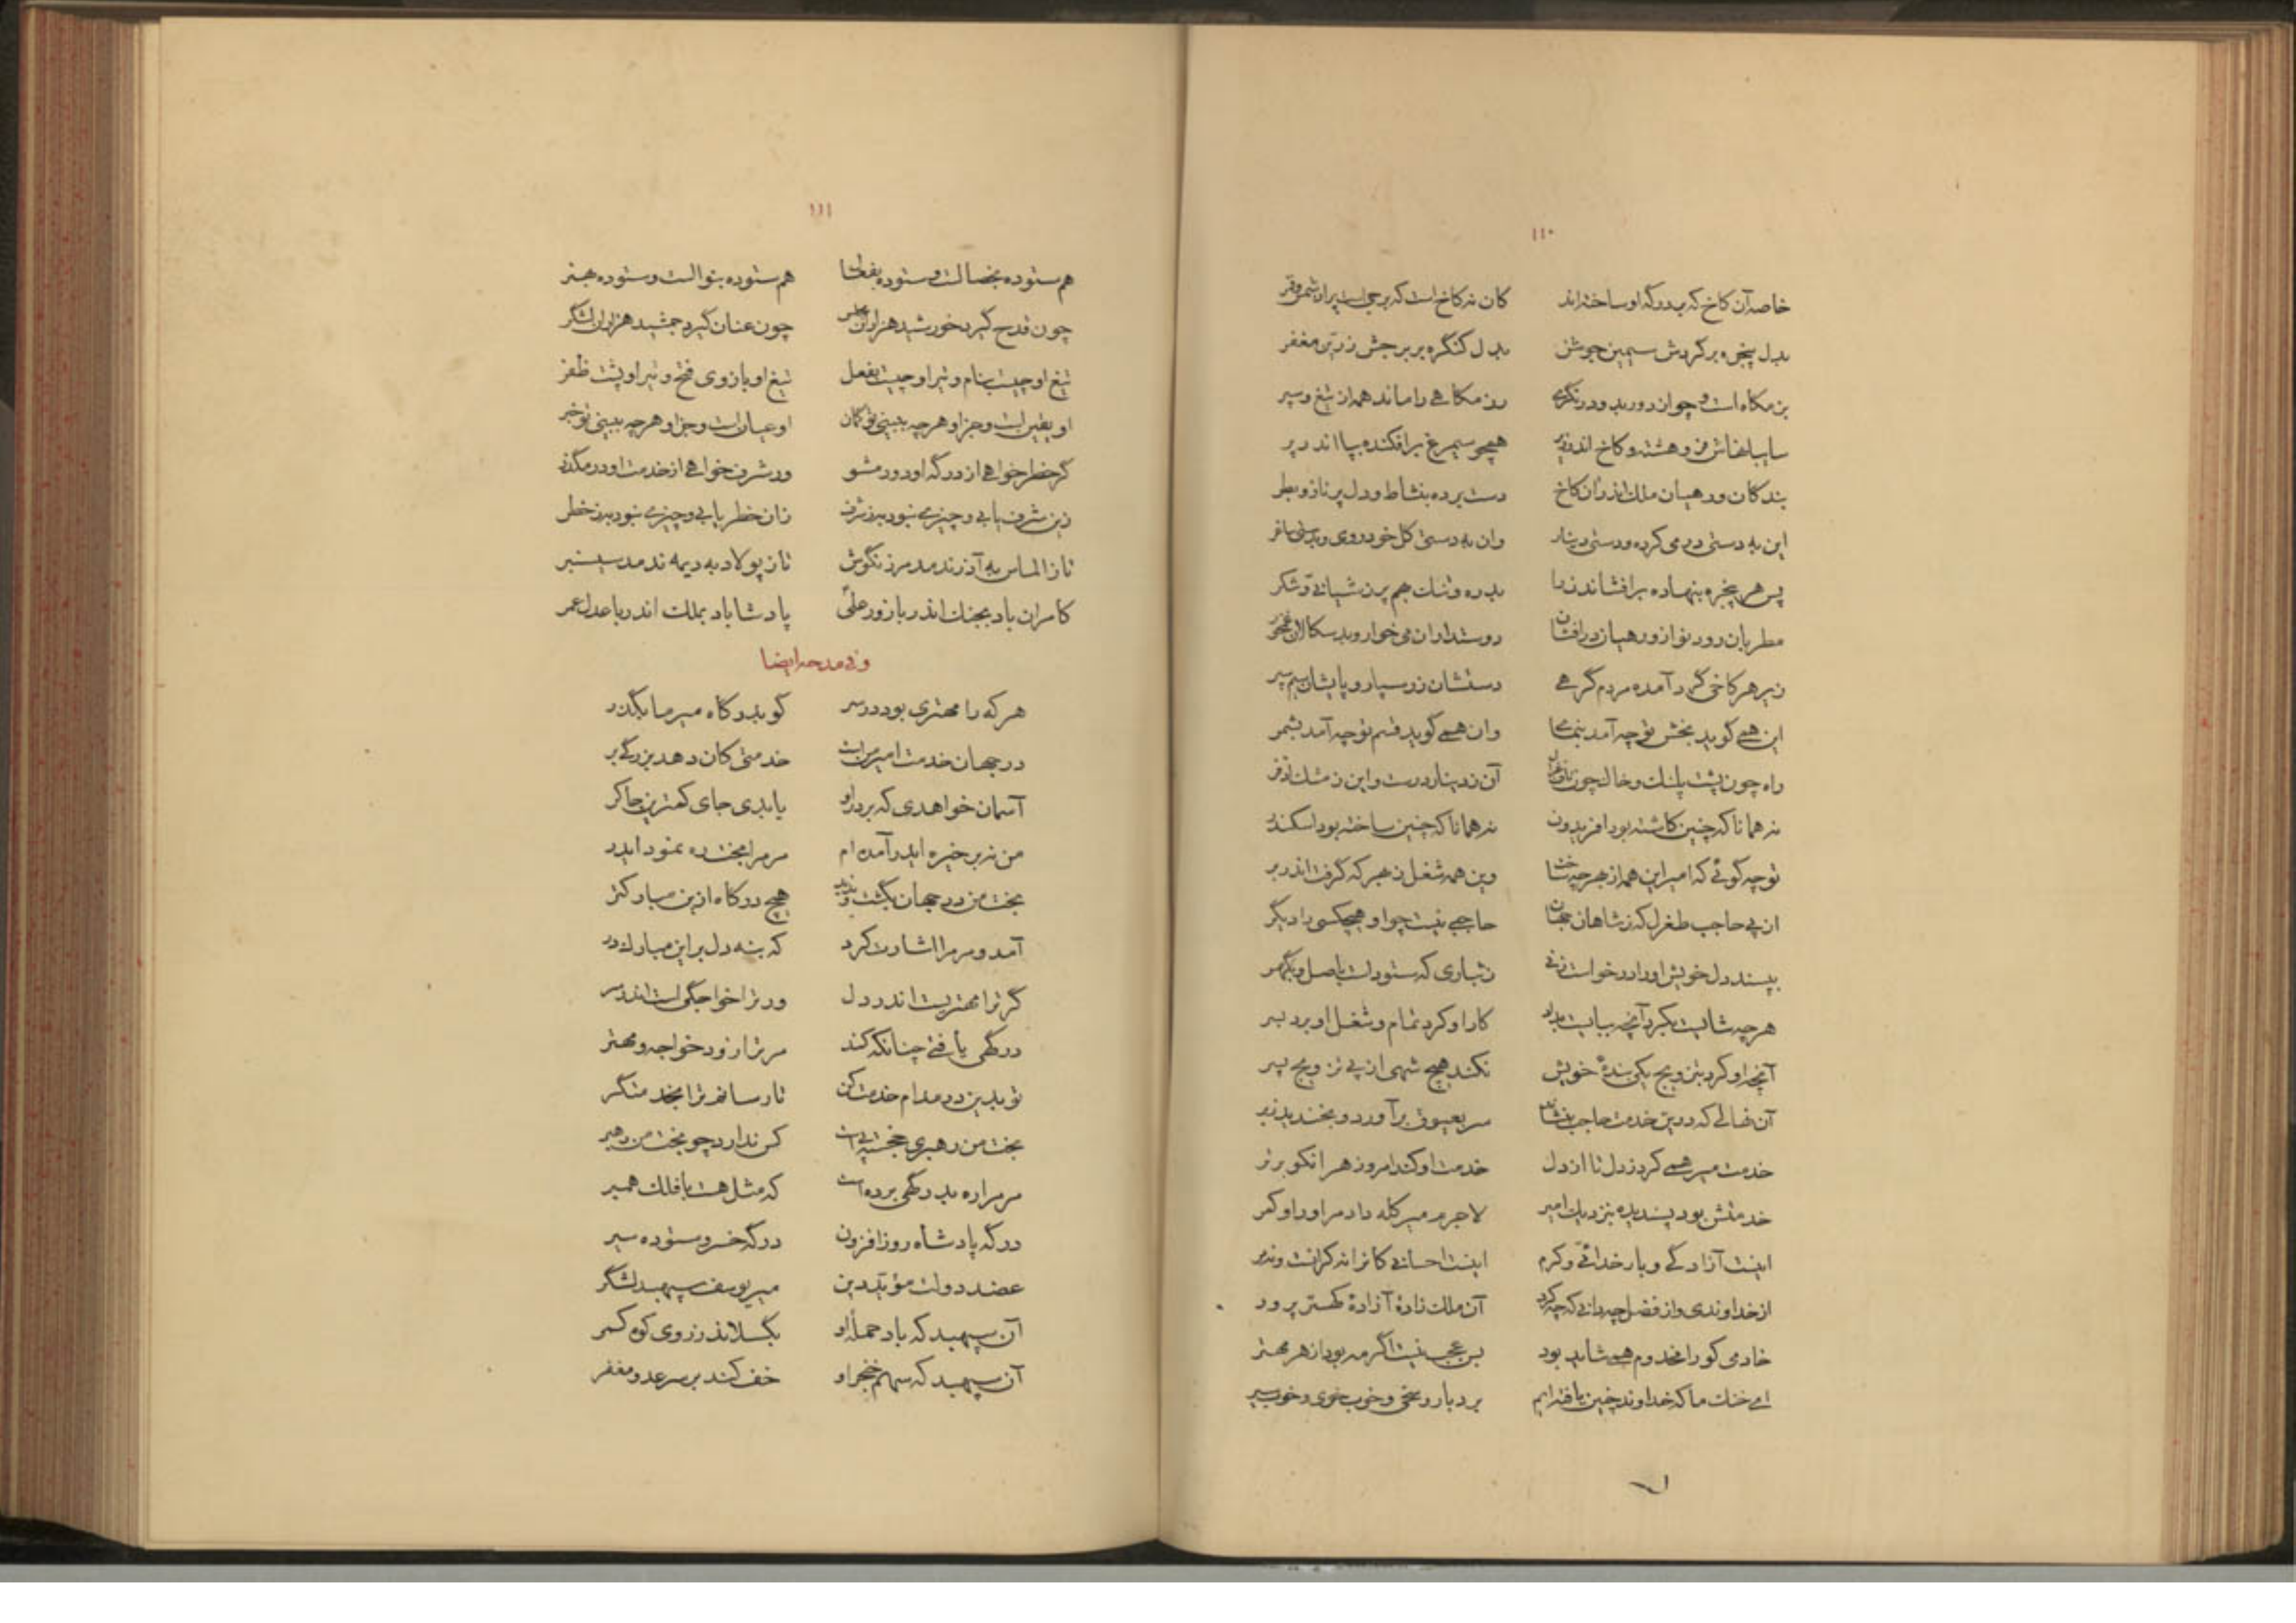 ۱۱۰
خاصه آن کاخ که بدرگه او ساخته‌اند کان نه کاخ است که برجی است پر از شمس و قمر
بدل پنجره بر گردش سیمین جوشن بدل کنگره بر برجش زرین مغفر
بزمگاه است و چو از دور بدو درنگری رزمگاهی را ماند همه از تیغ و سپر
سایبانهاش فرو هشته و کاخ اندر زیر همچو سیمرغ برافکنده بپا اندر پر
بندگان و رهیان ملک اندر آن کاخ دست برده بنشاط و دل پر ناز و بطر
این به دستی درمی کرده و دستی دینار وان به دستی گل خودروی و بدستی ساغر
پس هر پنجره بنهاده برافشاندن را بدره و تنگ بهم پر ز شیانی و شکر
مطربان رود نواز و رهیان زر افشان دوستداران می خوار و بدسگالان غم خور
زیر هر کاخی گرد آمده مردم گرهی دستشان زر سپار و پایشان سیم سپر
این همی گوید بخش تو چه آمد بنمای وان همی گوید قسم تو چه آمد بشمر
راه چون پشت پلنگ و خاک چون ناف غزال آن ز دینار درست و این ز مشک اذفر
نه همانا که چنین کاشته بود افریدون نه همانا که چنین ساخته بود اسکندر
تو چه گوئی که امیر این همه از بهر چه ساخت وین همه شغل ز بهر که گرفت اندر بر
از پی حاجب طغرل که ز شاهان جهان حاجبی نیست چو او هیچکسی را دیگر
بپسند دل خویش او را در خواست زنی ز تباری که ستوده است باصل و بگهر
هر چه شایست بکرد آنچه ببایست بداد کار او کرد تمام و شغل او برد بسر
آنچه او کرد بتزویج یکی بندۀ خویش نکند هیچ شهی از پی تزویج پسر
آن نهالی که درین خدمت حاجب بنشاند سر بعیوق برآورد و بخندید زبر
خدمت میر همی کرد ز دل تا از دل خدمت او کند امروز هر انکو برتر
خدمتش بود پسندیده بنزدیک امیر لاجرم میر کله داد مر او را و کمر
اینت آزادگی و بار خدائی و کرم اینت احسانی کانرا نه کرانست و نه مر
از خداوندی و از فضل چه دانی که چه کرد آن ملک زادۀ آزادۀ کهتر پرور
خادمی کو را مخدوم همو شاید بود بس عجب نیست اگر مه بود از هر مهتر
ای خنک ما که خداوند چنین یافته‌ایم بردبار و سخی و خوب خوی و خوب سیر
۱۱۱
هم ستوده بخصالت و ستوده بفعال هم ستوده بنوالست و ستوده بهنر
چون قدح گیرد خورشید هزاران مجلس چون عنان گیرد جمشید هزاران لشگر
تیغ او چیست بنام و تیر او چیست بفعل تیغ او بازوی فتح و تیر او پشت ظفر
او یقین است و جز او هر چه ببینی تو گمان او عیان است و جز او هر چه ببینی تو خبر
گر خطر خواهی از درگه او دور مشو ور شرف خواهی از خدمت او در مگذر
زین شرف یابی و چیزی نبود بر ز شرف زان خطر یابی و چیزی نبود بر ز خطر
تا ز الماس به آذر ندمد مرزنگوش تا ز پولاد به دیمه ندمد سیسنبر
کامران باد بجنگ اندر با زور علی پادشا باد بملک اندر با عدل عمر
و فی مدحه ایضا
هر که را مهتری بود در سر گو بدرگاه میر ما بگذر
در جهان خدمت امیر مراست خدمتی کان دهد بزرگی بر
آسمان خواهدی که بر در او یابدی جای کمترین چاکر
من نه بر خیره ایدر آمده‌ام مر مرا بخت ره نمود ایدر
بخت من در جهان بگشت و ندید هیچ درگاه ازین مبارکتر
آمد و مر مرا اشارت کرد که بنه دل بر این مبارک در
گر ترا مهتریست اندر دل ور ترا خواجگی است اندر سر
درگهی یافتی چنانکه کند مر ترا زود خواجه و مهتر
تو بدین در مدام خدمت کن تا رساند ترا بخدمتگر
بخت من رهبری خجسته پی است کس ندارد چو بخت من رهبر
مر مرا ره بدرگهی برده است که مثل هست با فلک همبر
درگه پادشاه روزافزون درگه خسرو ستوده سیر
عضد دولت مؤید دین میر یوسف سپهبد لشگر
آن سپهبد که باد حملۀ او بگسلاند ز روی کوه کمر
آن سپهبد که سهم خنجر او خف کند بر سر عدو مغفر